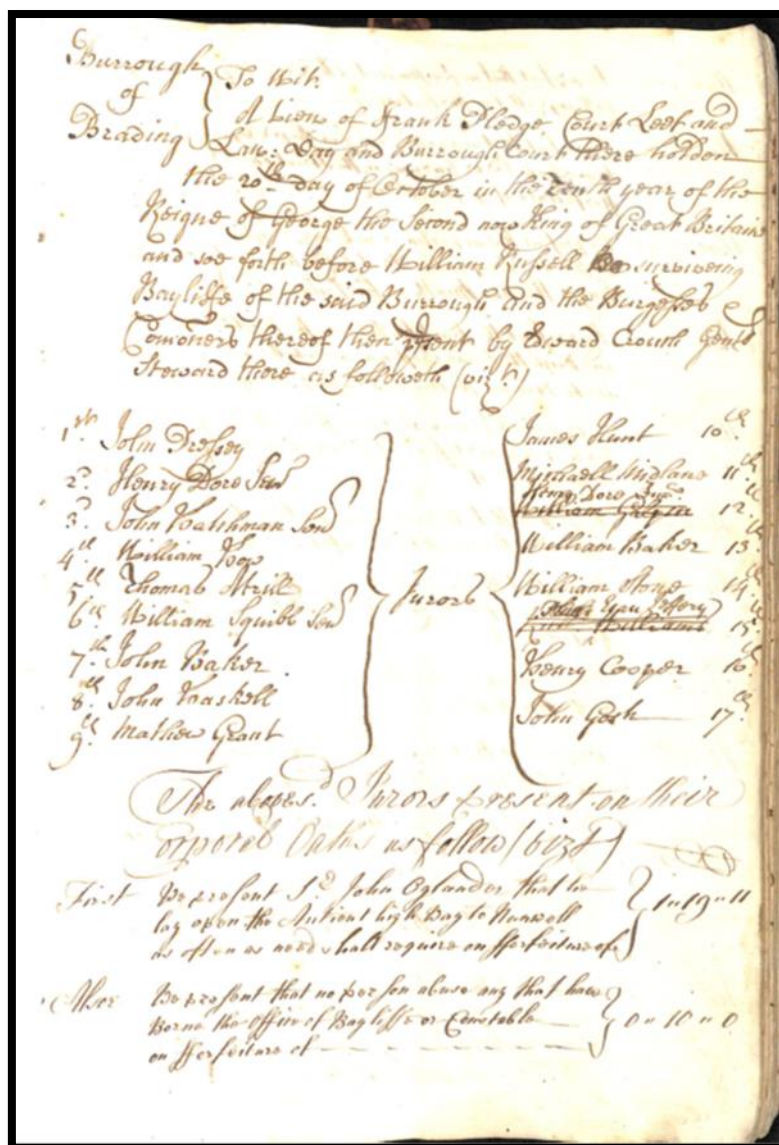 Burrough
of
Brading
To Wit.
A View of Frank Pledge, Court Leet and
Law-Day and Burrough Court there holden
the 20th day of October in the Tenth year of the
Reigne of George the Second now King of Great Britaine
and soe forth before William Russell surviveing
Bayliffe of the said Burrough and the Burgesses &
Comoners thereof then psent by Edward Crouch Gent
Steward there as followeth (vizt)
1st John Dressey
2d Henry Dore Senr
3d John Senr
4th William How
5th Thomas
6th William Squibb Senr
7th John Baker
8th John Haskell
9th Mathew Grant
Jurors
James Hunt 10th
Michaell Midlane 11th
Henry Dore Junr
William 12th
William Baker 13th
William Stone 14th
Williams 15th
Henry Cooper 16th
John Gosh 17th
The aboves.d Jurors present on their
Corporal Oaths as follow (vizt)
First We present Sr John Oglander that he
lay open the Antient high Way to Nunwell
as often as need shall require on fforfeiture of
1 " 19 " 11
Alsoe We present that no person abuse any that have
Borne the Office of Bayliffe or Constable
on fforfeiture of
0 " 10 " 0